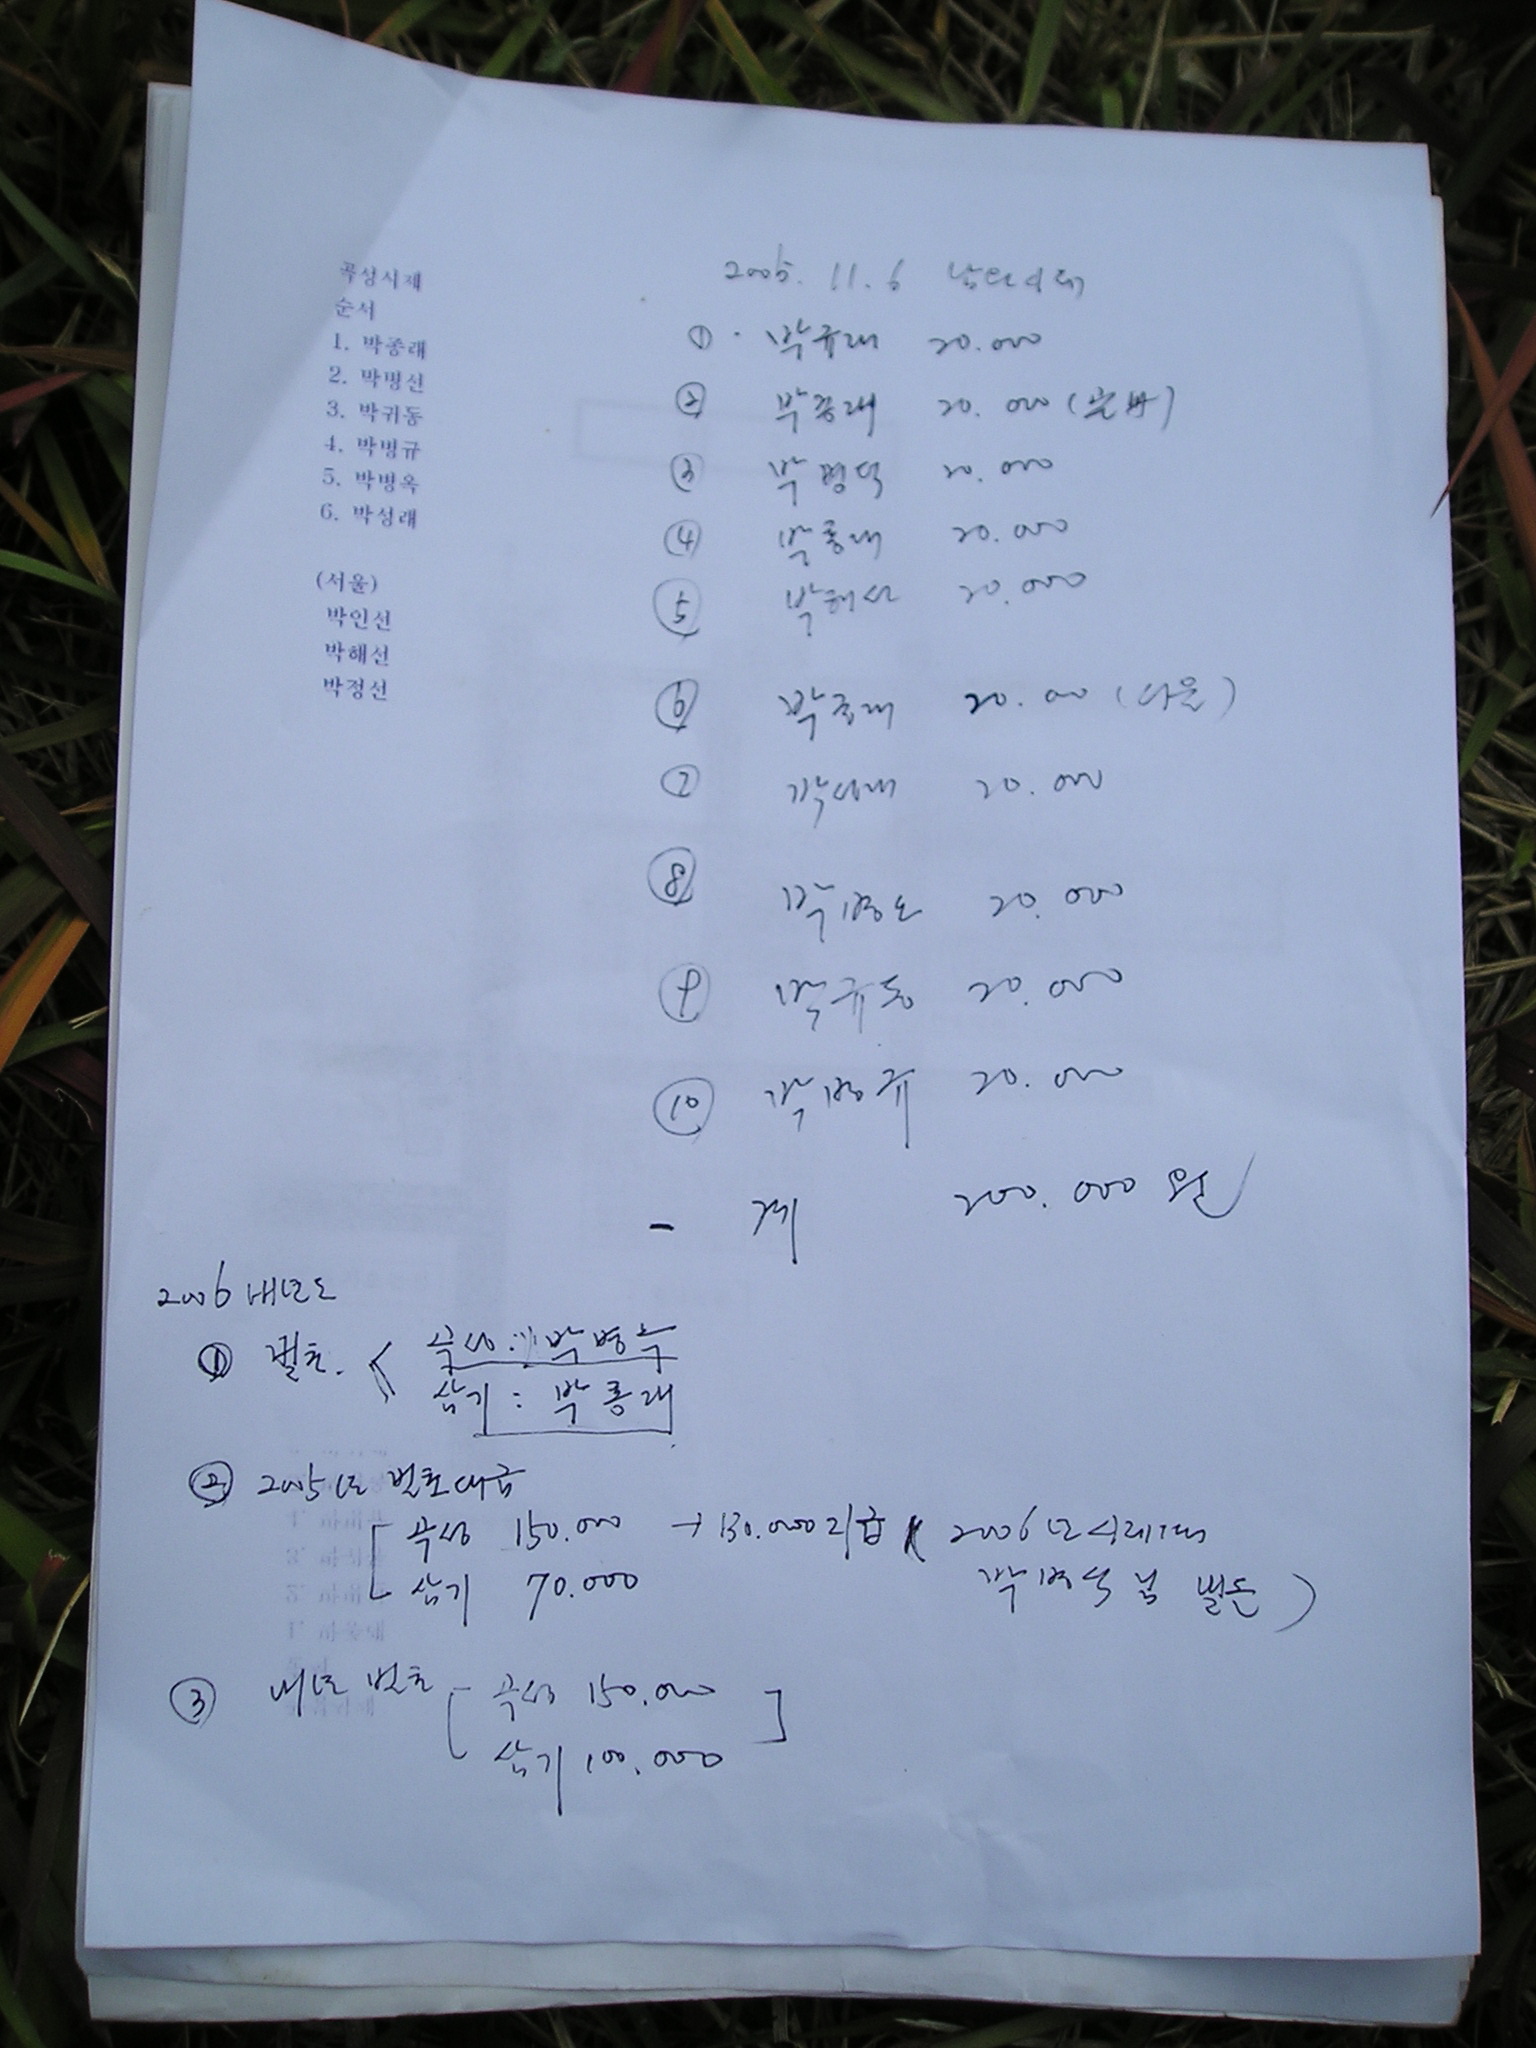 곡성시제
순서
1. 박종래
2. 박명선
3. 박귀동
4. 박병규
5. 박병옥
6. 박성래
(서울)
박인선
박해선
박정선
2005. 11. 6
① 박규래 20.000
② 박종래 20.000
③ 박평덕 20.000
④ 박홍래 20.000
⑤ 박해선 20.000
⑥ 박종래 20.000 (서울)
⑦ 박성래 20.000
⑧ 박병도 20.000
⑨ 박귀동 20.000
⑩ 박병규 20.000
- 계 200.000원
2006 내년도
① 벌초 < 곡성 : 박병수
삼기 : 박홍래
② 2005년 벌초대금
곡성 150.000 → 130.000지급 ( 2006년
삼기 70.000 박병수님 )
③ 내년 벌초 [ 곡성 150.000 ]
삼기 100.000